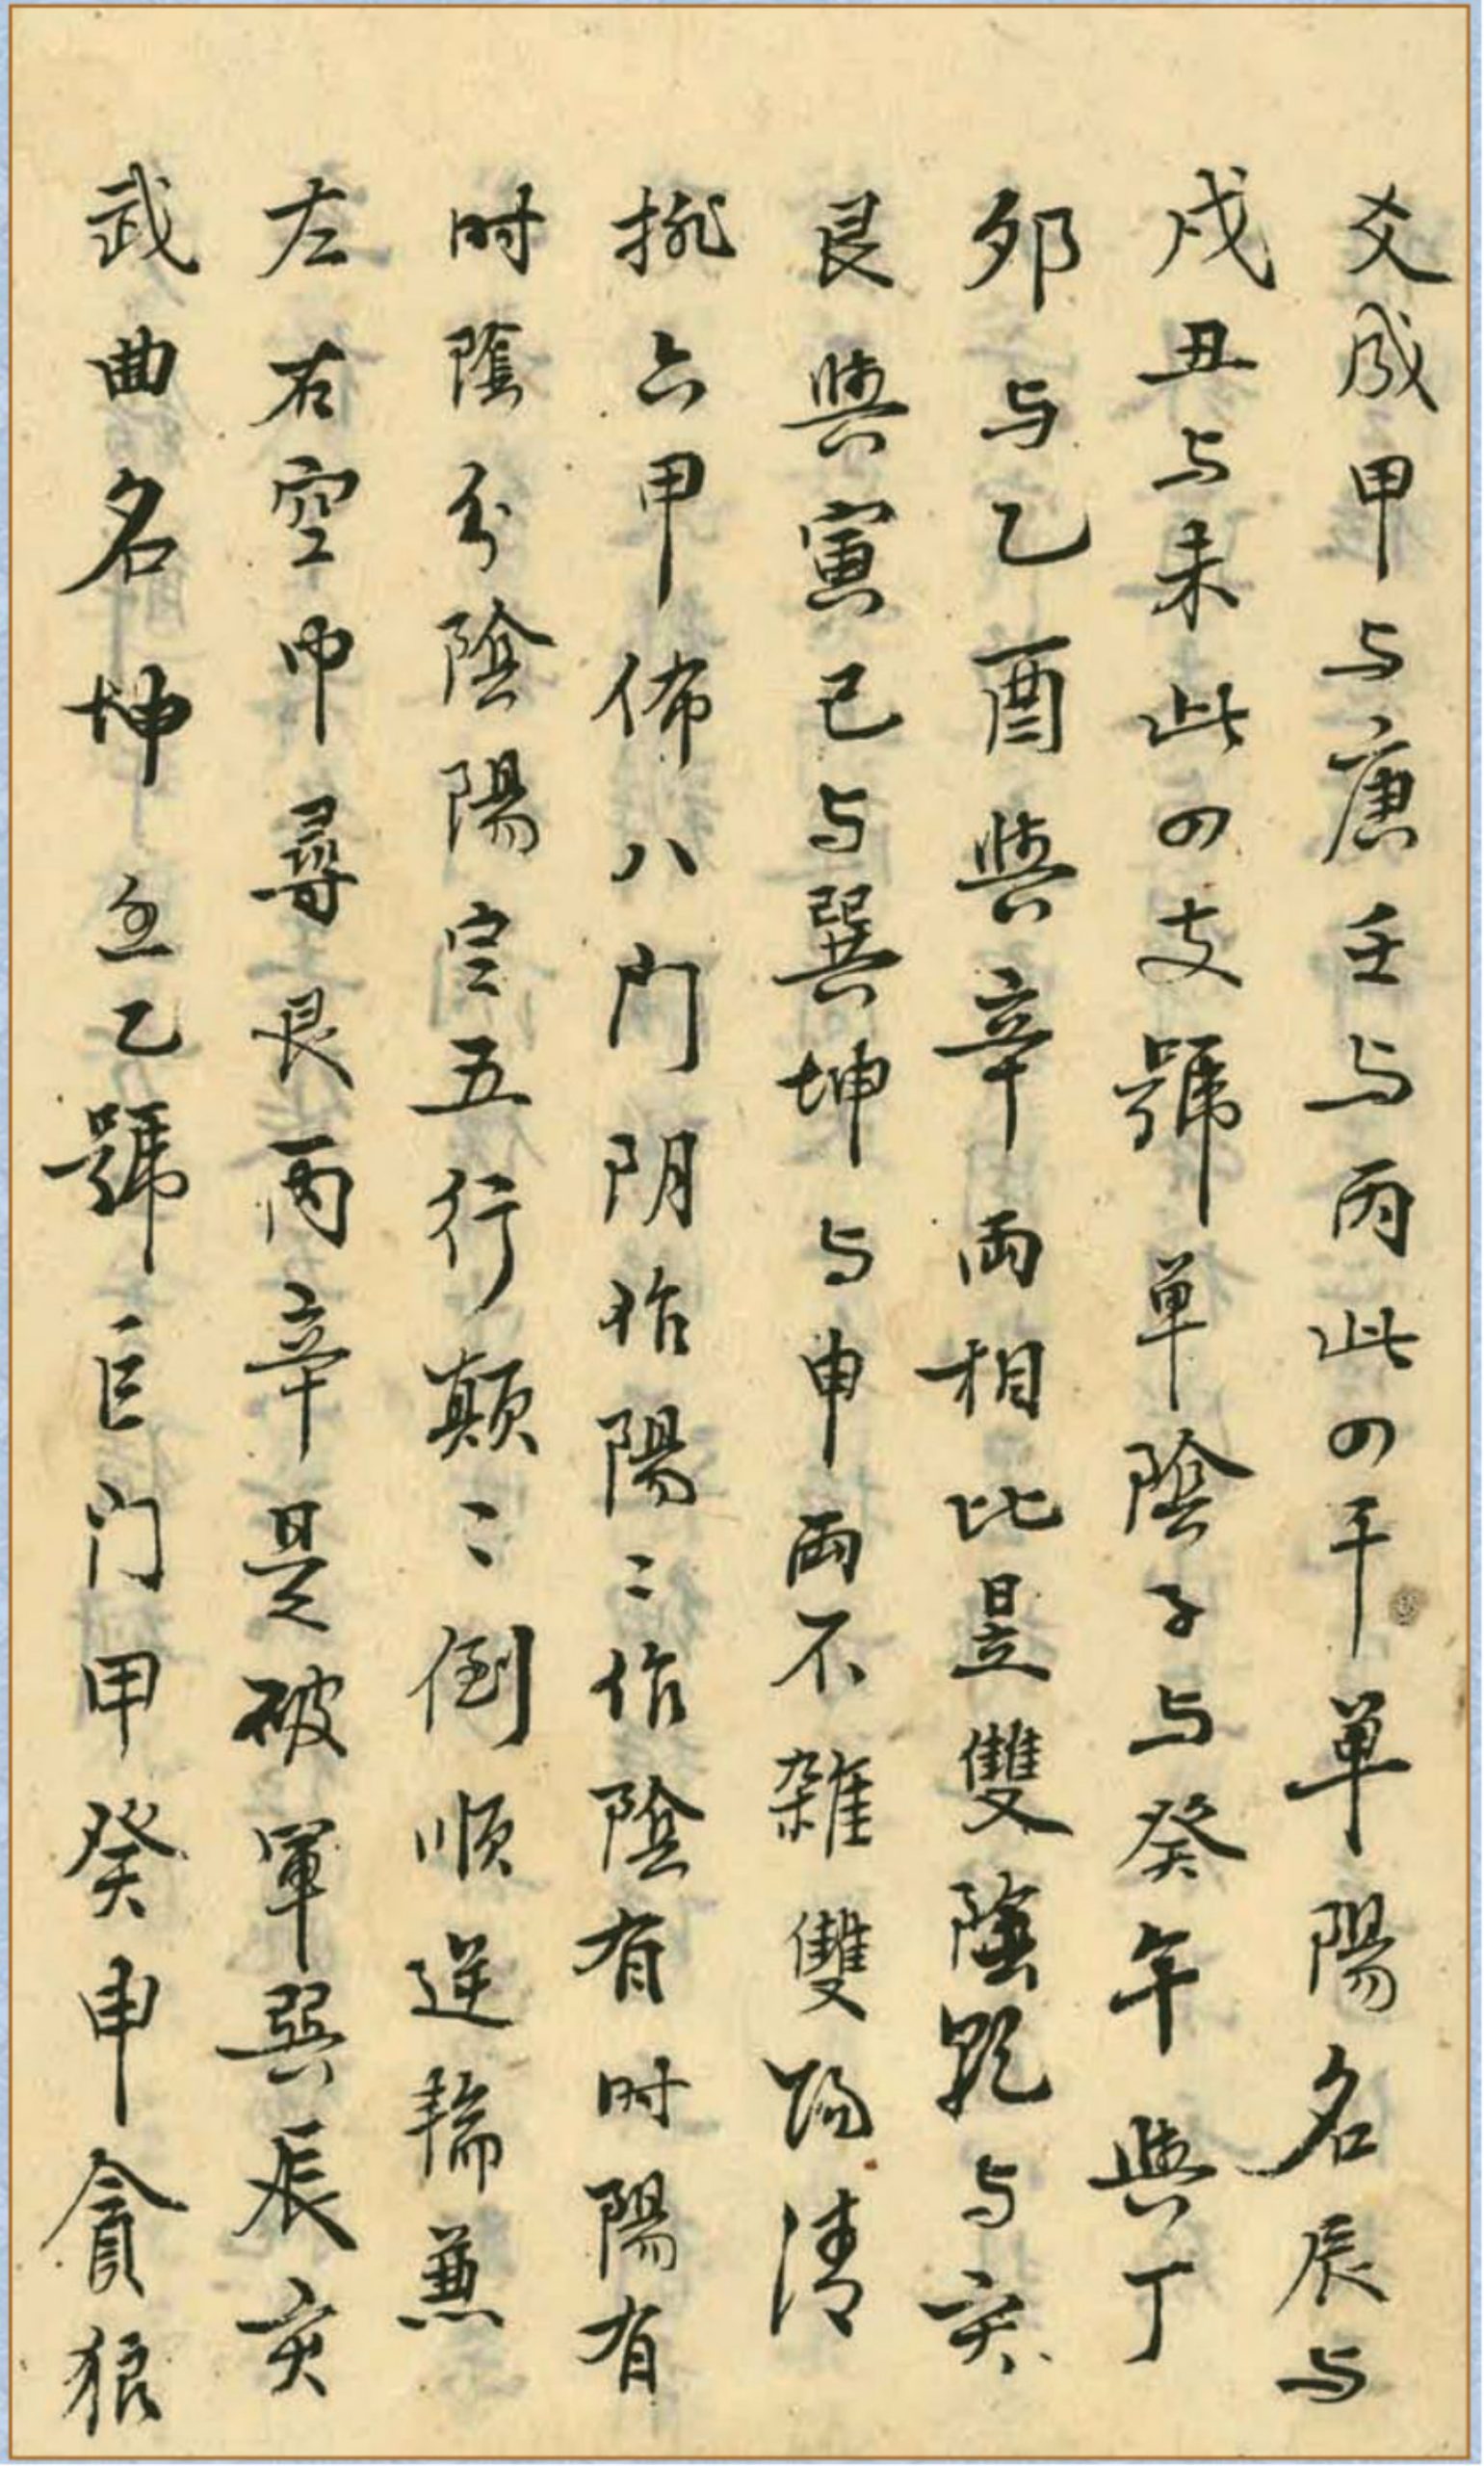 爻成甲与庚壬与丙此四干单陽名辰与
戌丑与未此四支號单陰子与癸午與丁
卯与乙酉與辛両相比是雙陰乾与亥
艮與寅巳与巽坤与申両不雜雙陽清
挑六甲佈八门阴作陽〻作陰有时陽有
时陰分陰陽定五行顛〻倒順逆輪兼
左右空中尋艮丙辛是破軍巽辰亥
武曲名坤壬乙號巨门甲癸申貪狼